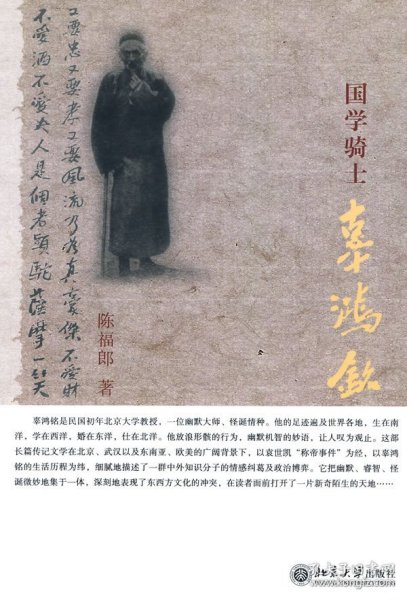 国学骑士
辜鸿铭
陈福郎 著
又要忠又要孝又要风流乃为真豪杰不爱财
不爱酒不爱夫人是个老头陀
辜鸿铭是民国初年北京大学教授，一位幽默大师、怪诞情种。他的足迹遍及世界各地，生在南
洋，学在西洋，婚在东洋，仕在北洋。他放浪形骸的行为，幽默机智的妙语，让人叹为观止。这部
长篇传记文学在北京、武汉以及东南亚、欧美的广阔背景下，以袁世凯“称帝事件”为经，以辜鸿
铭的生活历程为纬，细腻地描述了一群中外知识分子的情感纠葛及政治博弈。它把幽默、睿智、怪
诞微妙地集于一体，深刻地表现了东西方文化的冲突，在读者面前打开了一片新奇陌生的天地……
北京大学出版社